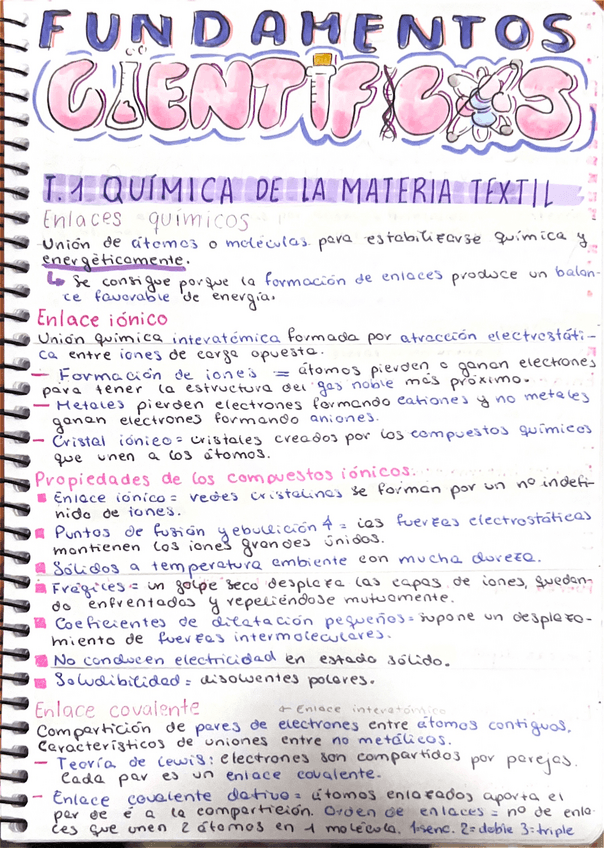 FUNDAMENTOS
CIENTÍFICOS
T.1 QUÍMICA DE LA MATERIA TEXTIL
Enlaces químicos
Unión de átomos o moléculas para estabilizarse química y
energéticamente.
↳ Se consigue porque la formación de enlaces produce un balan-
ce favorable de energía.
Enlace iónico
Unión química interatómica formada por atracción electrostáti-
ca entre iones de carga opuesta.
— Formación de iones = átomos pierden o ganan electrones
para tener la estructura del gas noble más próximo.
— Metales pierden electrones formando cationes y no metales
ganan electrones formando aniones.
— Cristal iónico = cristales creados por los compuestos químicos
que unen a los átomos.
Propiedades de los compuestos iónicos.
Enlace iónico = redes cristalinas se forman por un nº indefi-
nido de iones.
Puntos de fusión y ebullición ↑ = las fuerzas electrostáticas
mantienen los iones grandes unidos.
Sólidos a temperatura ambiente con mucha dureza.
Frágiles = un golpe seco desplaza las capas de iones, quedan-
do enfrentados y repeliéndose mutuamente.
Coeficientes de dilatación pequeños = supone un desplaza-
miento de fuerzas intermoleculares.
No conducen electricidad en estado sólido.
Soludibilidad = disolventes polares.
Enlace covalente ← Enlace interatómico
Compartición de pares de electrones entre átomos contiguos.
Característicos de uniones entre no metálicos.
— Teoría de Lewis: electrones son compartidos por parejas.
Cada par es un enlace covalente.
— Enlace covalente dativo = átomos enlazados aporta el
par de é a la compartición. Orden de enlaces = nº de enla-
ces que unen 2 átomos en 1 molécula. 1=senc. 2=doble 3=triple